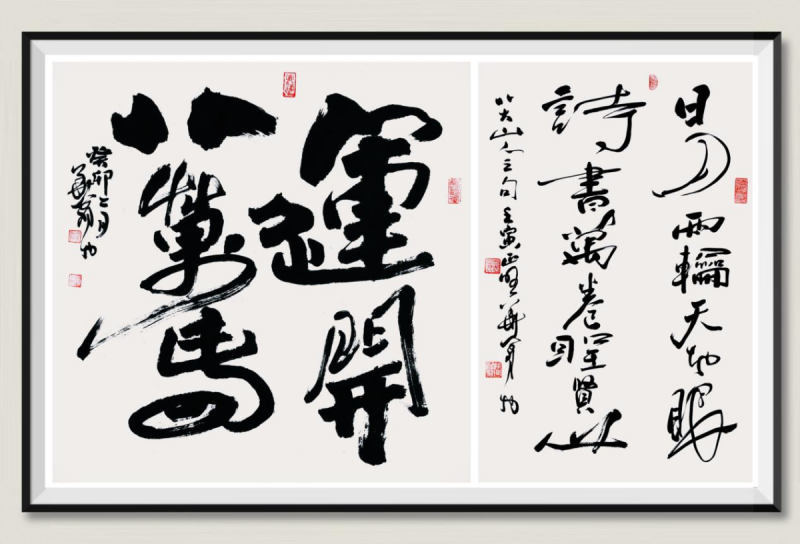 日月兩輪天地眼
詩書萬卷聖賢心
八大山人之句 壬寅正
運開
八萬
癸卯七月